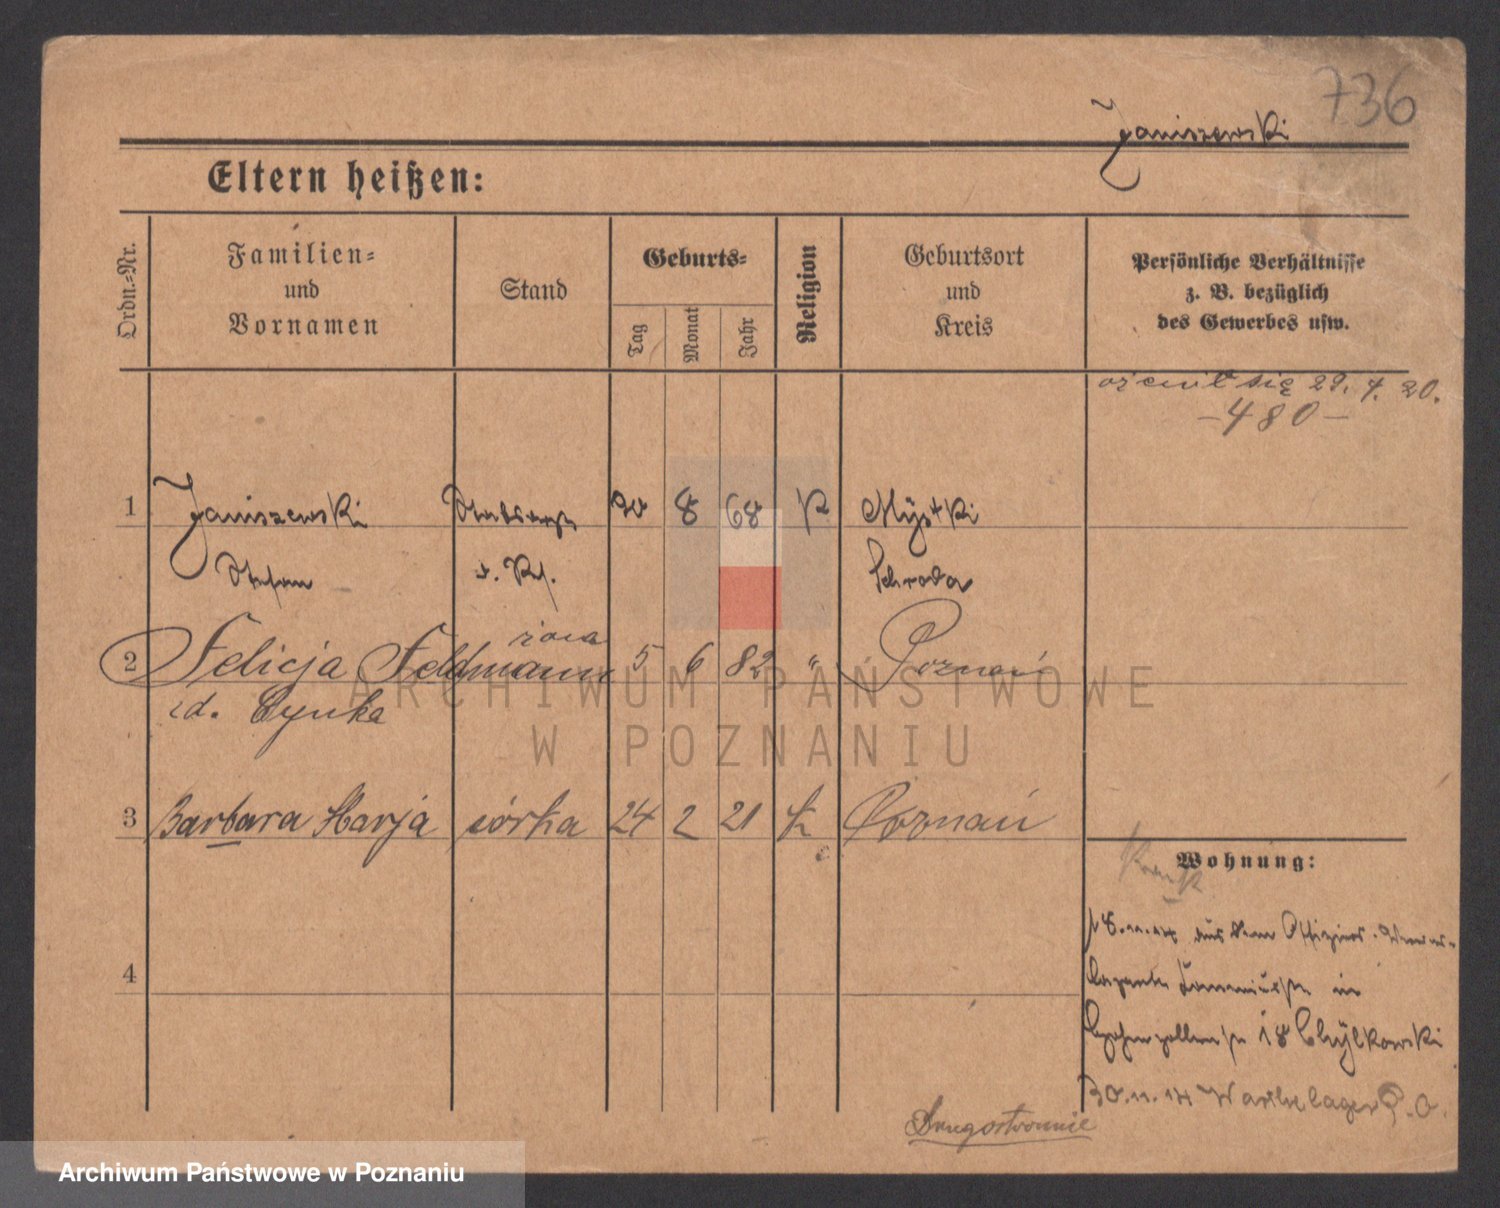 736
Janiszewski
Eltern heißen:
Ordn.-Nr.
Familien-
und
Vornamen
Stand
Geburts-
Tag
Monat
Jahr
Religion
Geburtsort
und
Kreis
Persönliche Verhältnisse
z. B. bezüglich
des Gewerbes usw.
ożenił się 29. 4. 20.
-480-
1 Janiszewski 8 68 K
Stefan Schroda
żona
2 Felicja Feldmann 5 6 82 " Poznań
id. Cynka
3 Barbara Marja córka 24 2 21 k Poznań
Wohnung:
aus dem
4
in
18 Chylkowski
30.11.14 Warthelager P. O.
Drugostronnie
ARCHIWUM PAŃSTWOWE
W POZNANIU
Archiwum Państwowe w Poznaniu